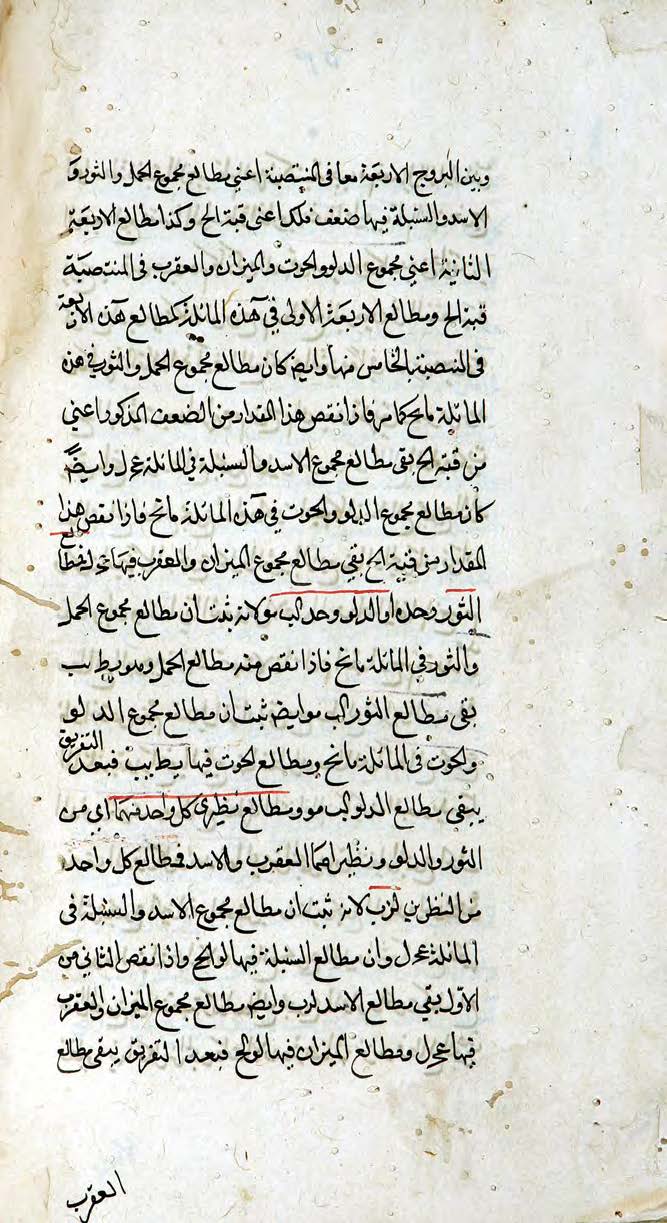 وبين البروج الاربعة معا فى المنتصبة اعنى مطالع مجموع الحمل والثور و
الاسد والسنبلة فيها ضعف فلك اعنى قبة الح وكذا مطالع الاربعة
الثانية اعنى مجموع الدلو والحوت والميزان والعقرب فى المنتصبة
قبة الح ومطالع الاربعة الاولى فى هذه المائلة كمطالع هذه الاربعة
فى المنتصبة بالخامس منها وايضا كان مطالع مجموع الحمل والثور فى هذه
المائلة مانح كما مر فاذا نقص هذا المقدار من الضعف المذكور اعنى
من قبة الح بقى مطالع مجموع الاسد والسنبلة فى المائلة عرل وايضاً
كان مطالع مجموع الدلو والحوت فى هذه المائلة مانح فاذا نقص هذا
المقدار من قبة الح بقى مطالع مجموع الميزان والعقرب فيها مطالع
الثور وحده او الدلو وحده لب مو لانه ثبت ان مطالع مجموع الحمل
والثور فى المائلة مانح فاذا نقص منه مطالع الحمل وهو يط يب
بقى مطالع الثور لب مو وايضا ثبت ان مطالع مجموع الدلو
والحوت فى المائلة مانح ومطالع الحوت فيها يط يب فبعد التفريق
يبقى مطالع الدلو لب مو ومطالع نظيرى كل واحد منهما اى من
الثور والدلو ونظيراهما العقرب والاسد فمطالع كل واحد
من النظيرين لرب لانه ثبت ان مطالع مجموع الاسد والسنبلة فى
المائلة عرل وان مطالع السنبلة فيها لو لح واذا نقص الثانى من
الاول بقى مطالع الاسد لرب وايضا مطالع مجموع الميزان والعقرب
فيها عرل ومطالع الميزان فيها لو لح فبعد التفريق يبقى مطالع
العقرب